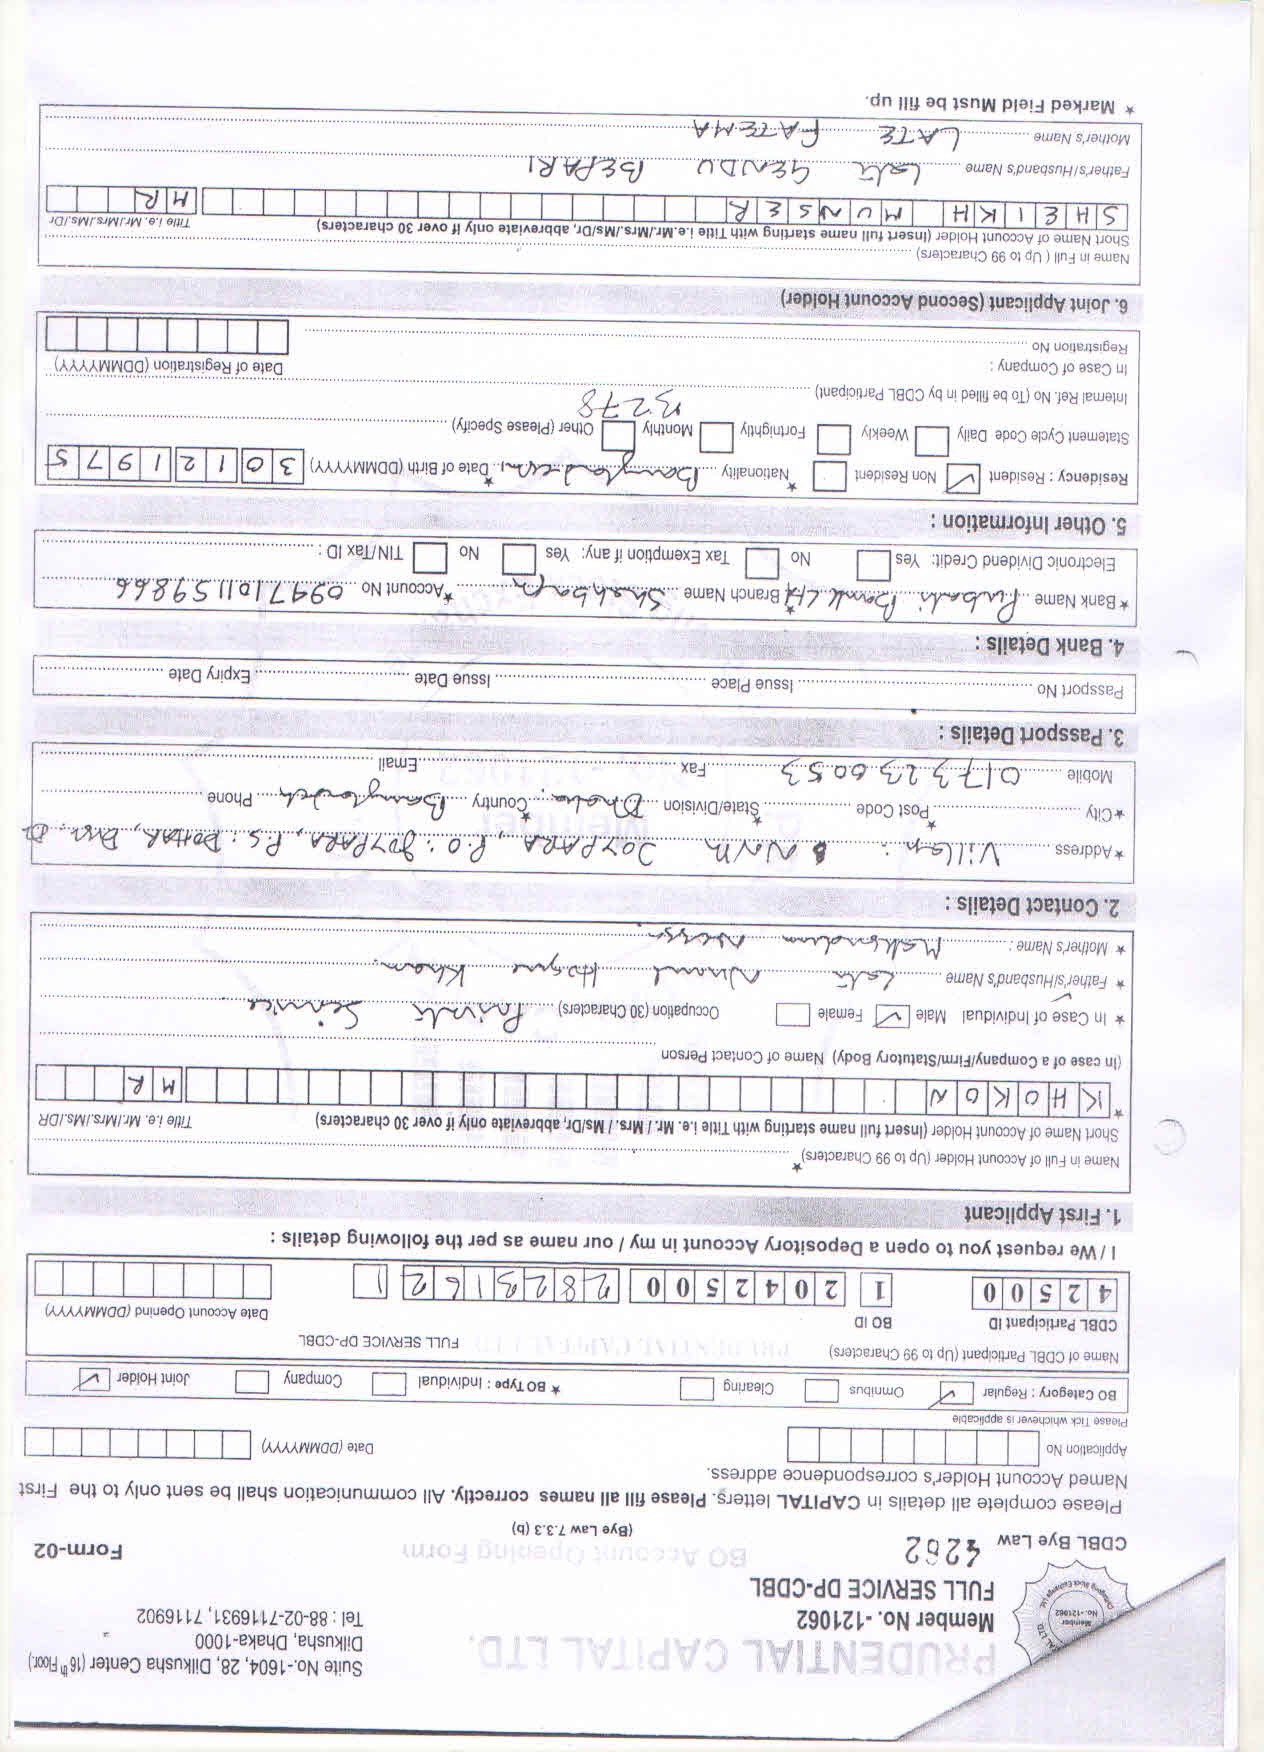 PRUDENTIAL CAPITAL LTD.
Suite No.-1604, 28, Dilkusha Center (16th Floor.)
Dilkusha, Dhaka-1000
Tel : 88-02-7116931, 7116902
Member No. -121062
FULL SERVICE DP-CDBL
Member
No.-121062
CDBL Bye Law 4262
BO Account Opening Form
Form-02
(Bye Law 7.3.3 (b)
Please complete all details in CAPITAL letters. Please fill all names correctly. All communication shall be sent only to the First
Named Account Holder's correspondence address.
Application No
Date (DDMMYYYY)
Please Tick whichever is applicable
BO Category : Regular ✓ Omnibus Clearing * BO Type : Individual Company Joint Holder ✓
Name of CDBL Participant (Up to 99 Characters) PRUDENTIAL CAPITAL LTD FULL SERVICE DP-CDBL
CDBL Participant ID BO ID Date Account Openind (DDMMYYYY)
42500 1 2042500 2823162 1
I / We request you to open a Depository Account in my / our name as per the following details :
1. First Applicant
Name in Full of Account Holder (Up to 99 Characters)*
Short Name of Account Holder (Insert full name starting with Title i.e. Mr. / Mrs. / Ms/Dr, abbreviate only if over 30 characters) Title i.e. Mr./Mrs./Ms./DR
* KHOKON MR
(In case of a Company/Firm/Statutory Body) Name of Contact Person
* In Case of Individual Male ✓ Female Occupation (30 Characters) Private Service
* Father's/Husband's Name Late Nurul Hoque Khan.
* Mother's Name : Nessa.
2. Contact Details :
*Address Village : North JOYPARA, P.O : JOYPARA, P.S : DOHAR, Dist.
*City *Post Code *State/Division Dhaka. *Country Bangladesh Phone
Mobile 01732300 53 Fax Email
3. Passport Details :
Passport No Issue Place Issue Date Expiry Date
4. Bank Details :
*Bank Name Pubali Bank Ltd *Branch Name Shahbagh *Account No 0947101159866
Electronic Dividend Credit: Yes No Tax Exemption if any: Yes No TIN/Tax ID :
5. Other Information :
Residency : Resident ✓ Non Resident *Nationality Bangladeshi *Date of Birth (DDMMYYYY) 30121975
Statement Cycle Code Daily Weekly Fortnightly Monthly Other (Please Specify)
Internal Ref. No (To be filled in by CDBL Participant) B278
In Case of Company : Date of Registration (DDMMYYYY)
Registration No
6. Joint Applicant (Second Account Holder)
Name in Full ( Up to 99 Characters)
Short Name of Account Holder (Insert full name starting with Title i.e.Mr./Mrs./Ms/Dr, abbreviate only if over 30 characters) Title i.e. Mr./Mrs./Ms./Dr
SHEIKH MUNSER MR
Father's/Husband's Name Late GENDU BEPARI
Mother's Name LATE FATEMA
* Marked Field Must be fill up.